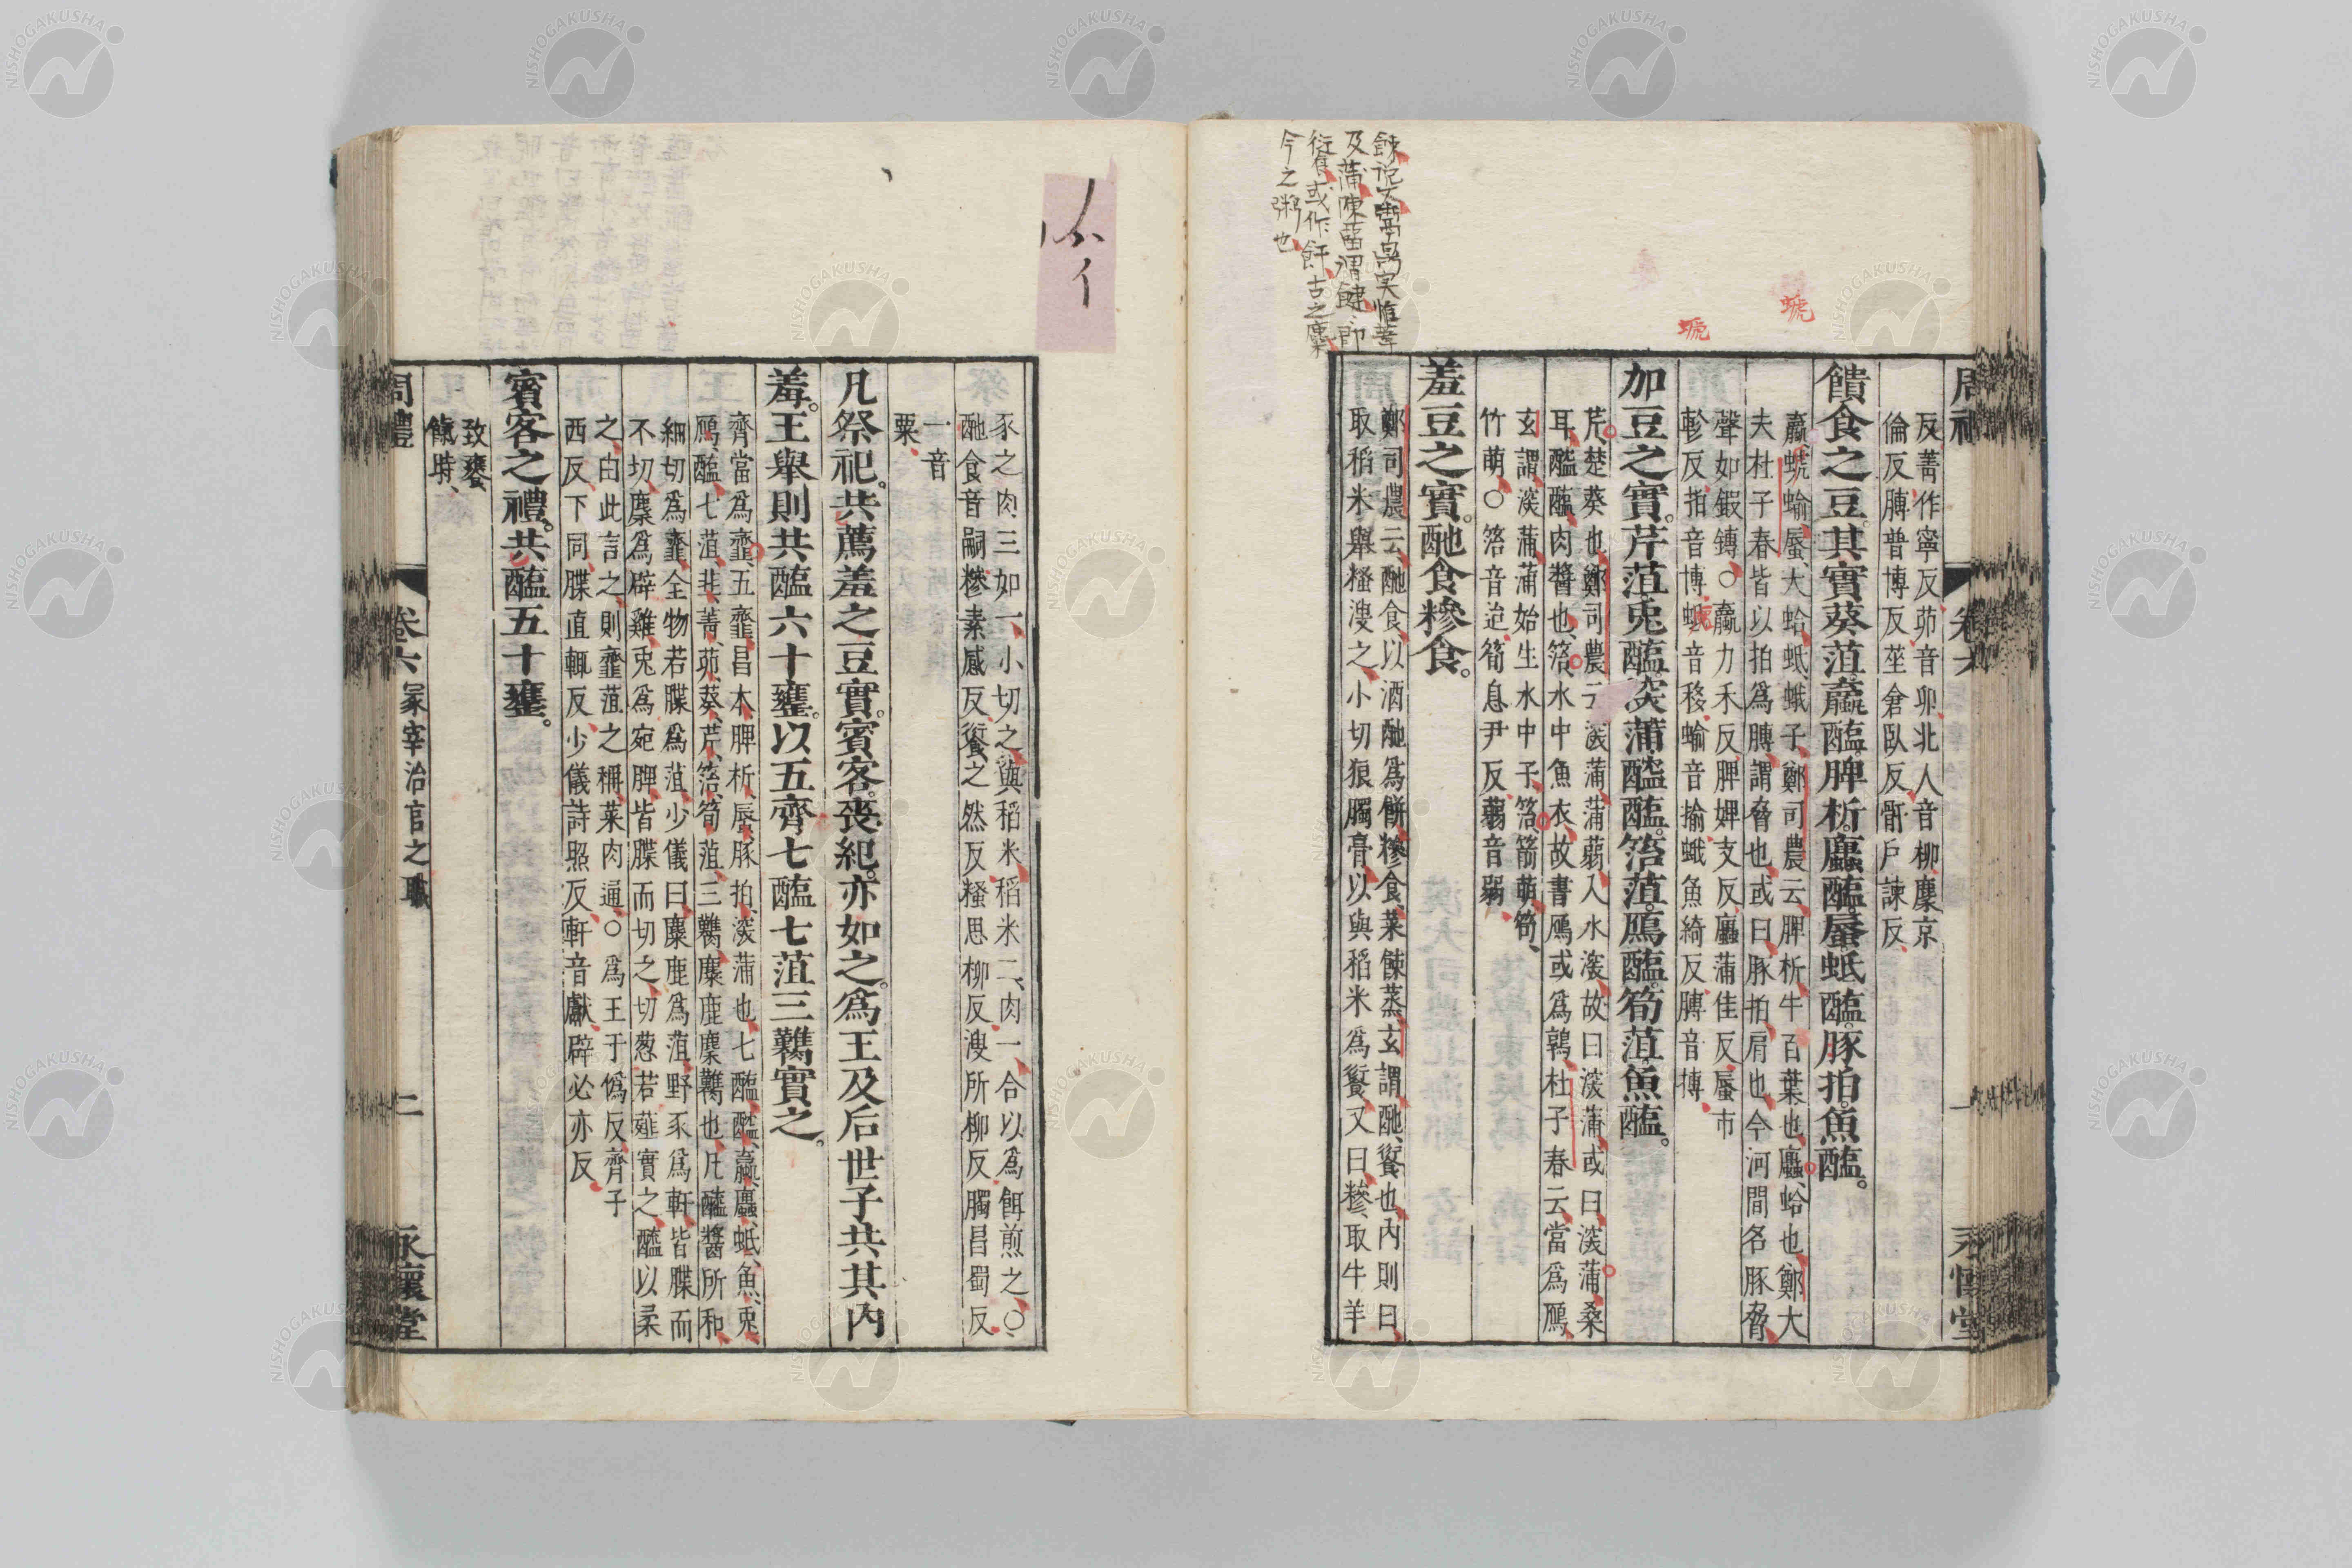 周禮
卷六
一
永懷堂
反菁作寧反茆音卯北人音柳麋京
倫反膊普博反莝倉臥反骭戶諫反
饋食之豆其實葵菹蠃醢脾析蠯醢蜃蚳醢豚拍魚醢
蠃螔蝓蜃大蛤蚳蛾子鄭司農云脾析牛百葉也蠯蛤也鄭大
夫杜子春皆以拍爲膊謂脅也或曰豚拍肩也今河間名豚脅
聲如鍛鎛○蠃力禾反脾婢支反蠯蒲佳反蜃市
軫反拍音博螔音移蝓音揄蛾魚綺反膊音博
加豆之實芹菹兎醢深蒲醓醢箈菹鴈醢筍菹魚醢
芹楚葵也鄭司農云深蒲蒲蒻入水深故曰深蒲或曰深蒲桑
耳醓醢肉醬也箈水中魚衣故書鴈或爲鶉杜子春云當爲鴈
玄謂深蒲蒲始生水中子箈箭萌筍
竹萌○箈音迨筍息尹反蒻音弱
羞豆之實酏食糝食
鄭司農云酏食以酒酏爲餅糝食菜餗蒸玄謂酏餰也內則曰
取稻米舉糔溲之小切狼臅膏以與稻米爲餰又曰糝取牛羊
螔
螔
及蒲陳畱謂餗卽
或作飦古之麋
今之粥也
豕之肉三如一小切之與稻米稻米二肉一合以爲餌煎之○
酏食音嗣糝素感反餰之然反糔思柳反溲所柳反臅昌蜀反
一音
粟
凡祭祀共薦羞之豆實賓客喪紀亦如之爲王及后世子共其內
羞王舉則共醢六十罋以五齊七醢七菹三臡實之
齊當爲韲五韲昌本脾析蜃豚拍深蒲也七醢醓蠃蠯蚳魚兎
鴈醢七菹韭菁茆葵芹箈筍菹三臡麋鹿麇臡也凡醯醬所和
細切爲韲全物若䐑爲菹少儀曰麋鹿爲菹野豕爲軒皆䐑而
不切麇爲辟雞兎爲宛脾皆䐑而切之切葱若薤實之醯以柔
之由此言之則韲菹之稱菜肉通○爲王于僞反齊子
西反下同䐑直輒反少儀詩照反軒音獻辟必亦反
賓客之禮共醢五十罋
致饔
餼時
周禮
卷六 冢宰治官之職
二
永懷堂